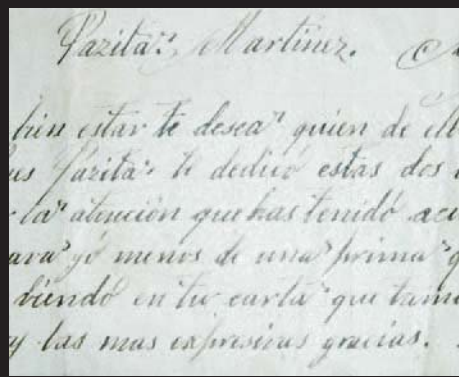 Pazita" Martinez.
bien estar te desea" quien de ell
us Pazita" te dedicó estas dos
la" atención que has tenidó
yó menos de una" prima" q
viendó en tu carta" que tam
y las mas expresivas gracias.